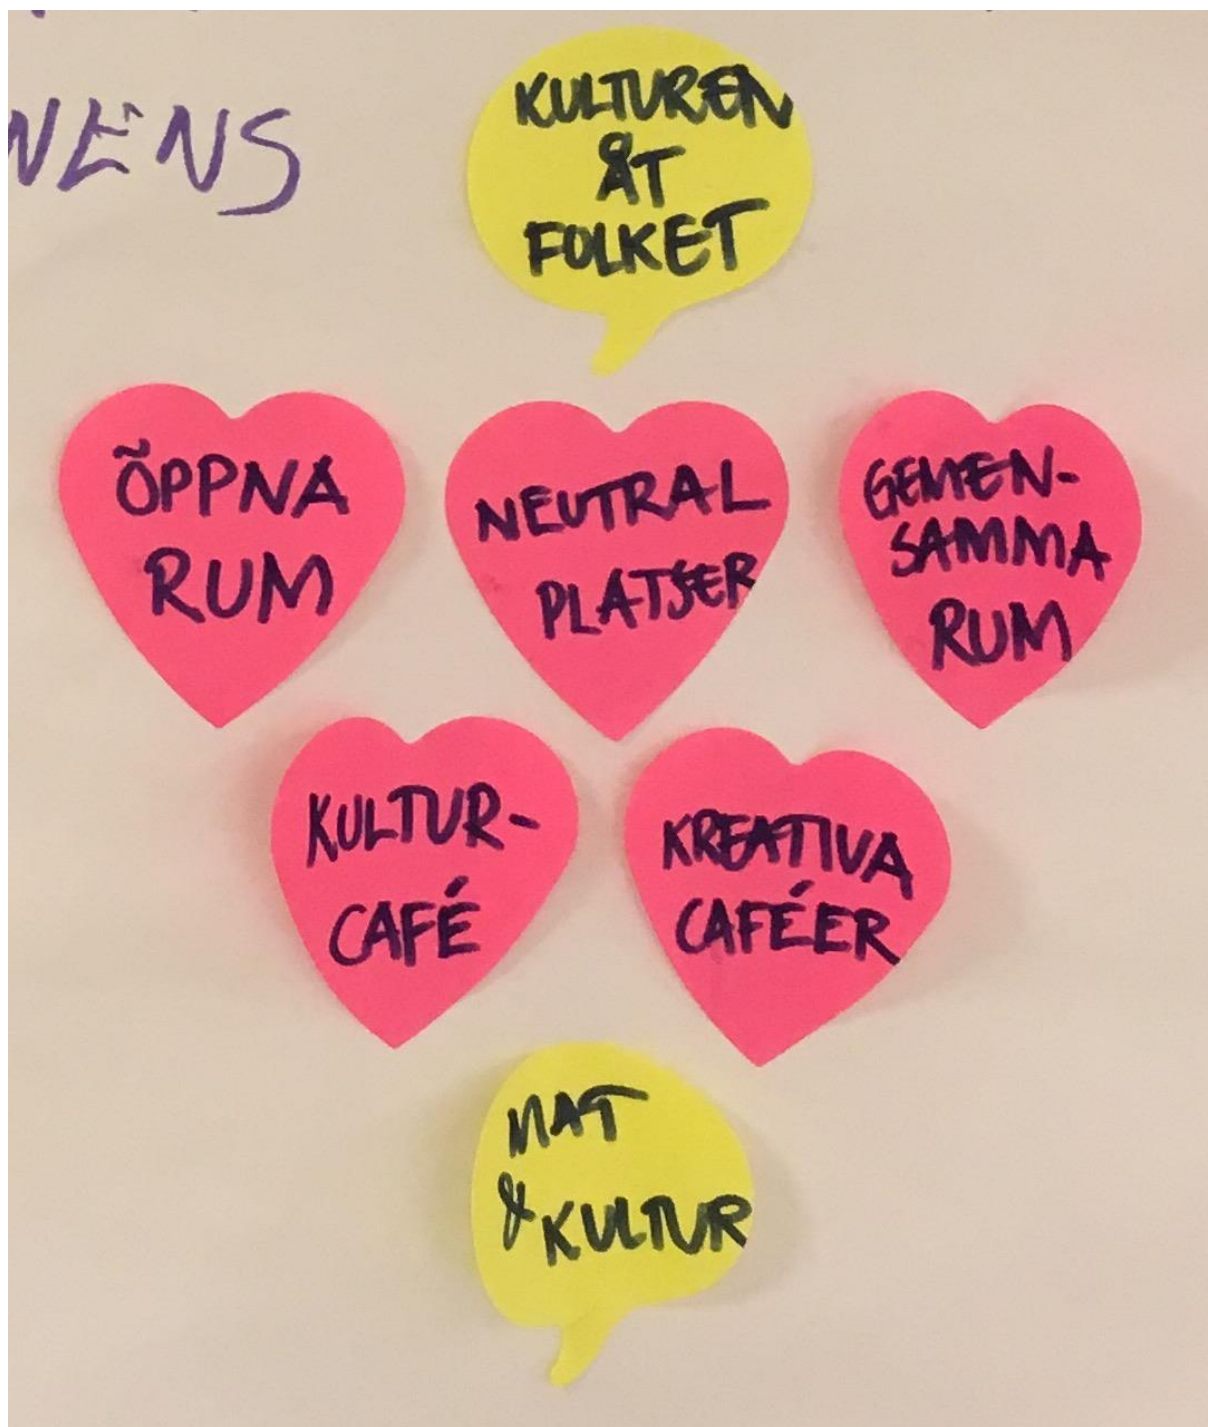 KULTUREN
ÅT
FOLKET
ÖPPNA
RUM
NEUTRAL
PLATSER
GEMEN-
SAMMA
RUM
KULTUR-
CAFÉ
KREATIVA
CAFÉER
MAT
& KULTUR